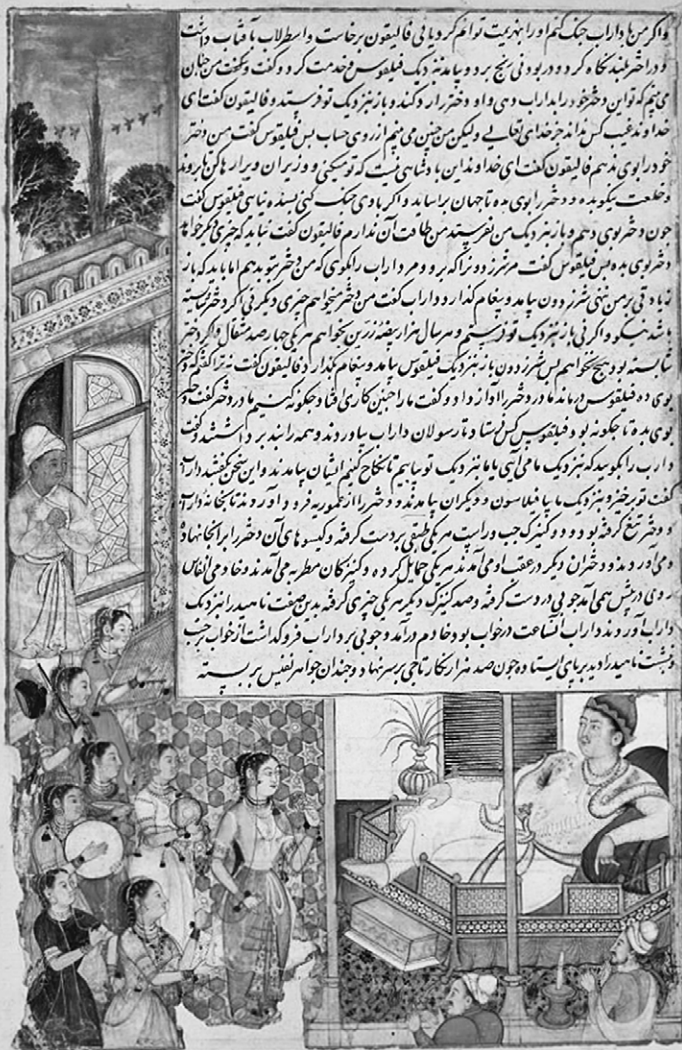 واکر من با داراب جنک کنم اورا بهزیمت توانم کرد یا نی فالیقون برخاست واسطرلاب بآفتاب داشت
و در اختر بلند نکاه کرد و در بودنی رنج برد و بیامد نزدیک فیلقوس و خدمت کرد و کفت من چنان
می بینم که تو این دختر خود را بداراب دهی و او دختر را رد کند و باز نزدیک تو فرستد و فالیقون کفت ای
خداوند غیب کس نداند جز خدای تعالی ولیکن من چنین می بینم از روی حساب بس فیلقوس کفت من دختر
خود را بوی ندهم فالیقون کفت ای خداوند این بادشاهی نیست که تو میکنی و وزیران
و خلعت نیکو بده و دختر را بوی ده تا جهان براساید واکر با وی جنک کنی بسنده نباشی فیلقوس کفت
جون دختر بوی دهم و باز نزدیک من بفرستد من طاقت آن ندارم فالیقون کفت نباید که چیزی دیکر خواهد
دختر بوی بده بس فیلقوس کفت مر شرزدون را که برو و مر داراب را بکوی که من دختر بتو بدهم اما باید که باز
زیادتی بر من ننهی شرزدون بیامد و بیغام کذارد داراب کفت من دختر بخواهم چیزی دیکر نی اکر دختر شایسته
باشد نیکو واکر نی باز نزدیک تو فرستم و هر سال هزار بیضه زرین بخواهم هر یکی چهارصد مثقال واکر دختر
شایسته بود هیچ نخواهم بس شرزدون باز نزدیک فیلقوس بیامد و بیغام بکذارد فالیقون کفت نه ترا کفتم که دختر
بوی ده فیلقوس درماند مادر دختر را آواز داد و کفت مارا چنین کاری افتاد چکونه کنیم مادر دختر کفت دختر
بوی بده تا چکونه بود فیلقوس کس فرستاد تا رسولان داراب بیاوردند و همه را بند برداشتند و کفت
داراب را بکویید که نزدیک ما می آیی یا ما نزدیک تو بیاییم تا نکاح کنیم ایشان بیامدند و این سخن بکفتند داراب
کفت تو برخیز و بنزدیک ما بیا فیلاسون و دیکران بیامدند و دختر را از عموریه فرود آوردند تا بخانه داراب
و دختر تیغ کرفته بود و دو کنیزک چب و راست هر یکی طبقی بر دست کرفته و کیسوهای آن دختر را بر آنجا نهاده
و می آوردند و دختران دیکر در عقب او می آمدند هر یکی حمایل کرده و کنیزکان مطربه می آمدند و خادمی
روی در پیش همی آمد چوبی در دست کرفته و صد کنیزک دیکر هر یکی چیزی کرفته بدین صفت ناهید را بنزدیک
داراب آوردند داراب آنساعت در خواب بود خادم درآمد و چوبی بر داراب فروکداشت از خواب برجست
و بنشست ناهید را دید بر پای ایستاده چون صد هزار نکار تاجی بر سر نهاد و چندان جواهر نفیس بر بسته